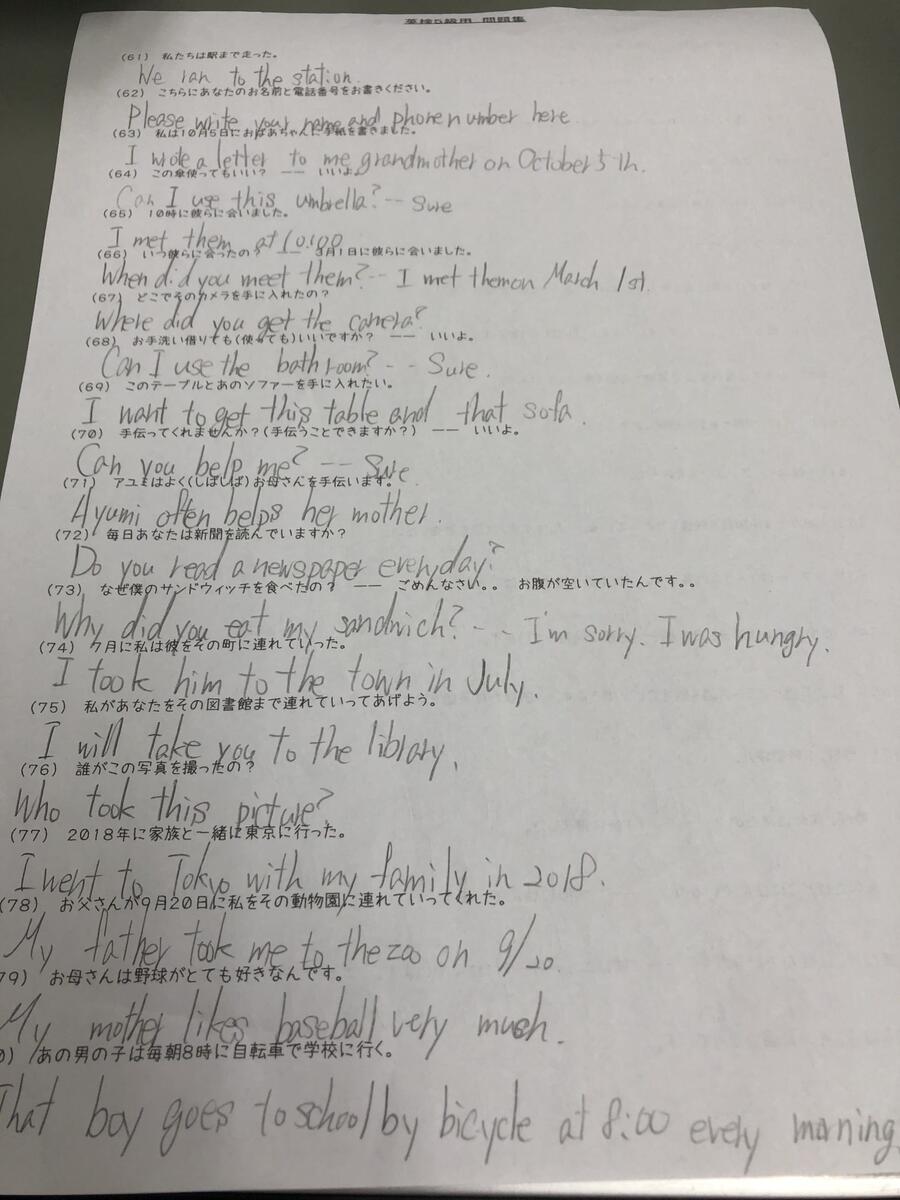 英検5級用 問題集
(61) 私たちは駅まで走った。
We ran to the station.
(62) こちらにあなたのお名前と電話番号をお書きください。
Please write your name and phone number here
(63) 私は10月5日におばあちゃんに手紙を書きました。
I wrote a letter to me grandmother on October 5th.
(64) この傘使ってもいい? ―― いいよ。
Can I use this umbrella? -- Sure
(65) 10時に彼らに会いました。
I met them at 10:00
(66) いつ彼らに会ったの? ―― 3月1日に彼らに会いました。
When did you meet them? -- I met them on March 1st.
(67) どこでそのカメラを手に入れたの?
Where did you get the camera?
(68) お手洗い借りても(使っても)いいですか? ―― いいよ。
Can I use the bathroom? -- Sure.
(69) このテーブルとあのソファーを手に入れたい。
I want to get this table and that sofa.
(70) 手伝ってくれませんか?(手伝うことできますか?) ―― いいよ。
Can you help me? -- Sure
(71) アユミはよく(しばしば)お母さんを手伝います。
Ayumi often helps her mother.
(72) 毎日あなたは新聞を読んでいますか?
Do you read a newspaper everyday?
(73) なぜ僕のサンドウィッチを食べたの? ―― ごめんなさい。。 お腹が空いていたんです。。
Why did you eat my sandwich? -- I'm sorry. I was hungry.
(74) 7月に私は彼をその町に連れていった。
I took him to the town in July.
(75) 私があなたをその図書館まで連れていってあげよう。
I will take you to the library.
(76) 誰がこの写真を撮ったの?
Who took this picture?
(77) 2018年に家族と一緒に東京に行った。
I went to Tokyo with my family in 2018.
(78) お父さんが9月20日に私をその動物園に連れていってくれた。
My father took me to the zoo on 9/20.
79) お母さんは野球がとても好きなんです。
My mother likes baseball very much.
0) あの男の子は毎朝8時に自転車で学校に行く。
That boy goes to school by bicycle at 8:00 every morning.